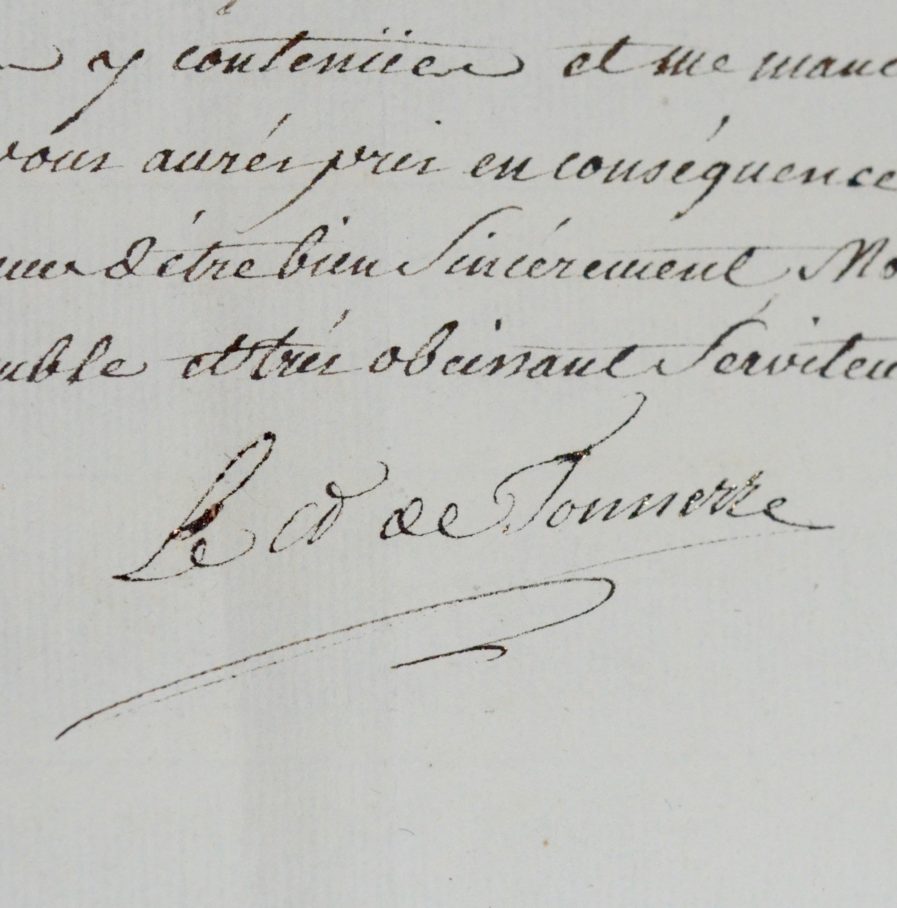 y contenües et me man
vous aurés pris en conséquence
d'être bien sincérement Mo
uble et très obeissant Serviteu
Le cte de Tonnerre